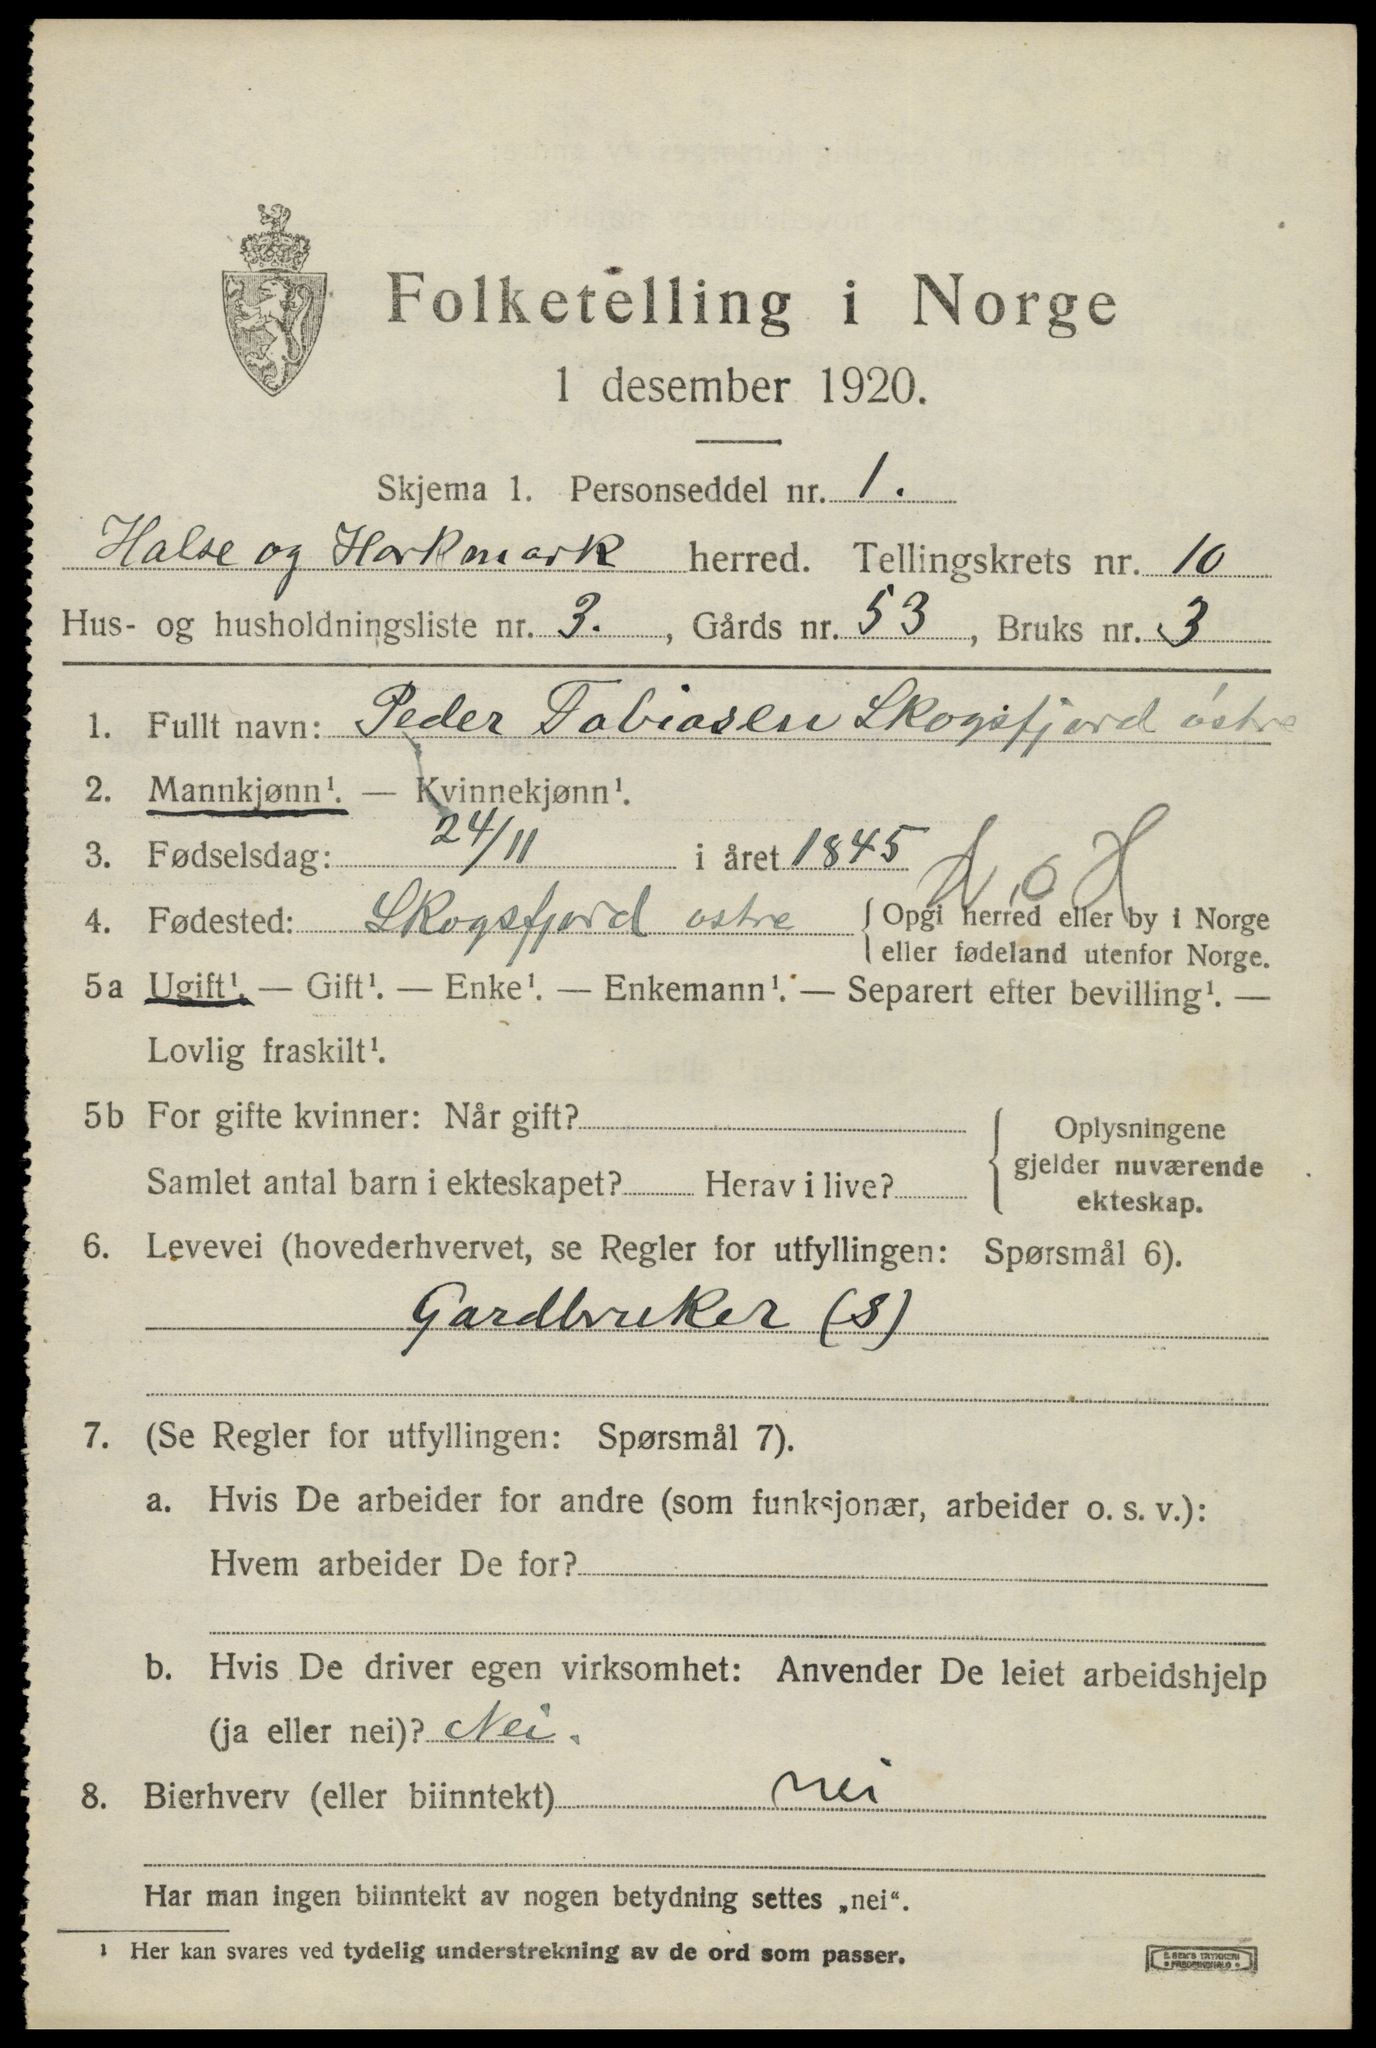 Folketelling i Norge
1 desember 1920.
Skjema 1. Personseddel nr. 1.
Halse og Harkmark herred. Tellingskrets nr. 10
Hus- og husholdningsliste nr. 3., Gårds nr. 53, Bruks nr. 3
1. Fullt navn: Peder Tobiasen Skogsfjord østre
2. Mannkjønn¹. — Kvinnekjønn¹.
3. Fødselsdag: 24/11 i året 1845
H. o H
4. Fødested: Skogsfjord østre { Opgi herred eller by i Norge
eller fødeland utenfor Norge.
5a Ugift¹. — Gift¹. — Enke¹. — Enkemann¹. — Separert efter bevilling¹. —
Lovlig fraskilt¹.
5b For gifte kvinner: Når gift?
Samlet antal barn i ekteskapet? Herav i live?
Oplysningene
gjelder nuværende
ekteskap.
6. Levevei (hovederhvervet, se Regler for utfyllingen: Spørsmål 6).
Gardbruker (s)
7. (Se Regler for utfyllingen: Spørsmål 7).
a. Hvis De arbeider for andre (som funksjonær, arbeider o. s. v.):
Hvem arbeider De for?
b. Hvis De driver egen virksomhet: Anvender De leiet arbeidshjelp
(ja eller nei)? Nei.
8. Bierhverv (eller biinntekt) nei
Har man ingen biinntekt av nogen betydning settes „nei“.
¹ Her kan svares ved tydelig understrekning av de ord som passer.
E. SEM'S TRYKKERI
FREDRIKSHALD